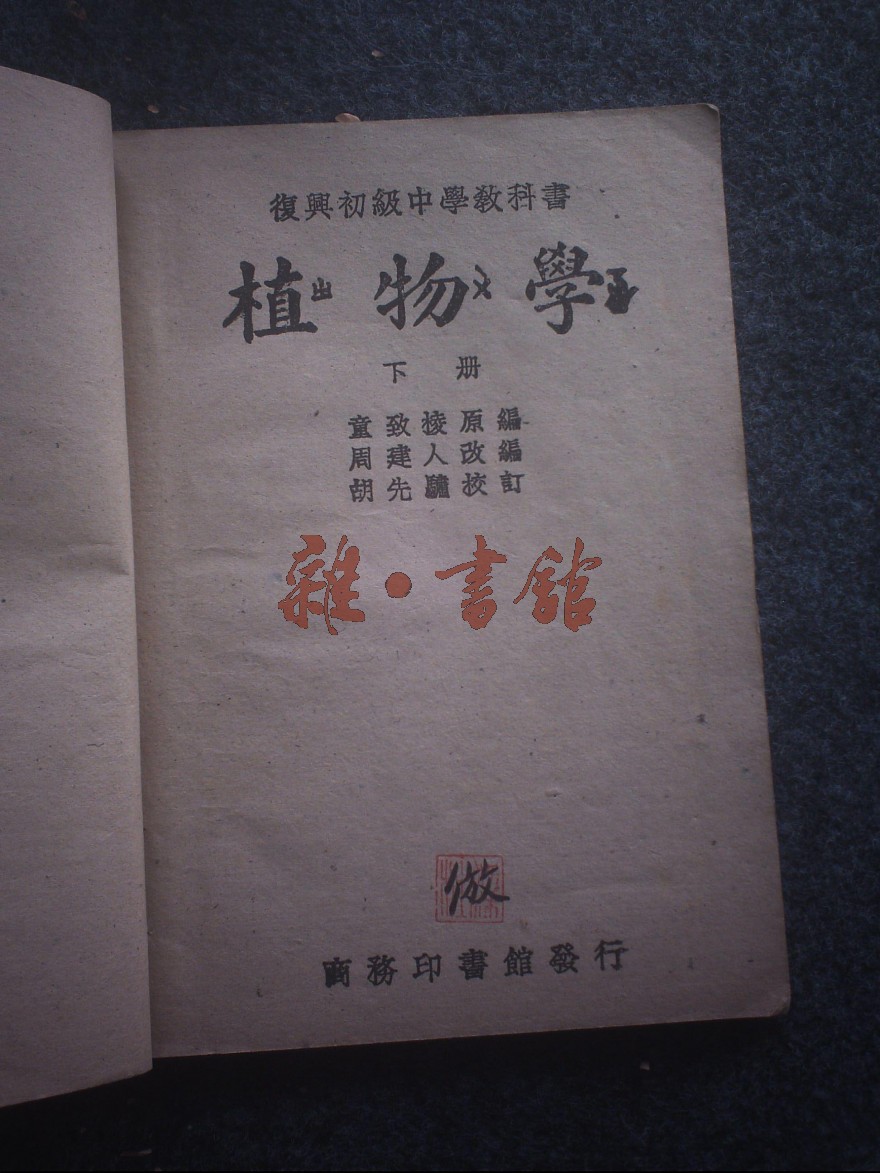 復興初級中學教科書
植物學
出
下册
童致棱原編
周建人改編
胡先驌校訂
雜·書館
倣
商務印書館發行